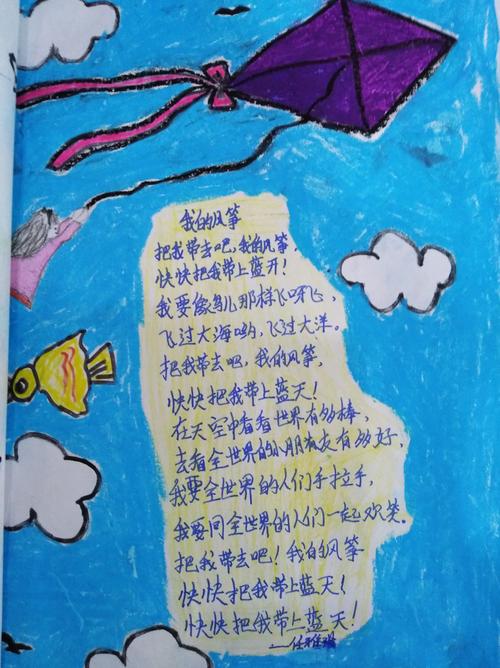 我的风筝
把我带去吧,我的风筝,
快快把我带上蓝开!
我要像鸟儿那样飞呀飞,
飞过大海哟,飞过大洋。
把我带去吧,我的风筝,
快快把我带上蓝天!
在天空中看看世界有多棒,
去看全世界的小朋友有多好,
我要全世界的人们手拉手,
我要同全世界的人们一起欢笑。
把我带去吧!我的风筝
快快把我带上蓝天!
快快把我带上蓝天!
——任雅